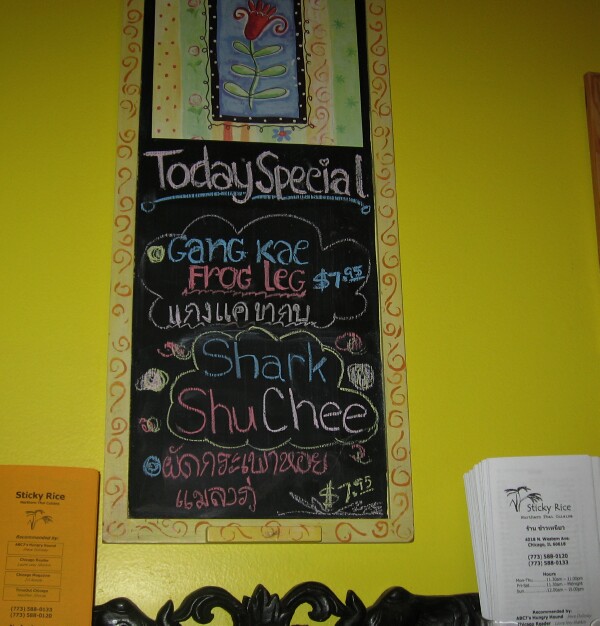 Today Special
Gang Kae
Frog Leg $7.95
แกงแคขากบ
Shark
Shu Chee
ผัดกระเพาหอย
แมลงภู่
$7.95
Sticky Rice
Northern Thai Cuisine
Recommended by:
ABC7's Hungry Hound
Chicago Reader
Chicago Magazine
(773) 588-0133
(773) 588-0120
Sticky Rice
Northern Thai Cuisine
ร้าน ข้าวเหนียว
4018 N Western Ave.
Chicago, IL 60618
(773) 588-0120
(773) 588-0133
Hours
Mon-Thu 11.30am - 11.00pm
Fri-Sat
Sun
Recommended by:
ABC7's Hungry Hound
Chicago Reader